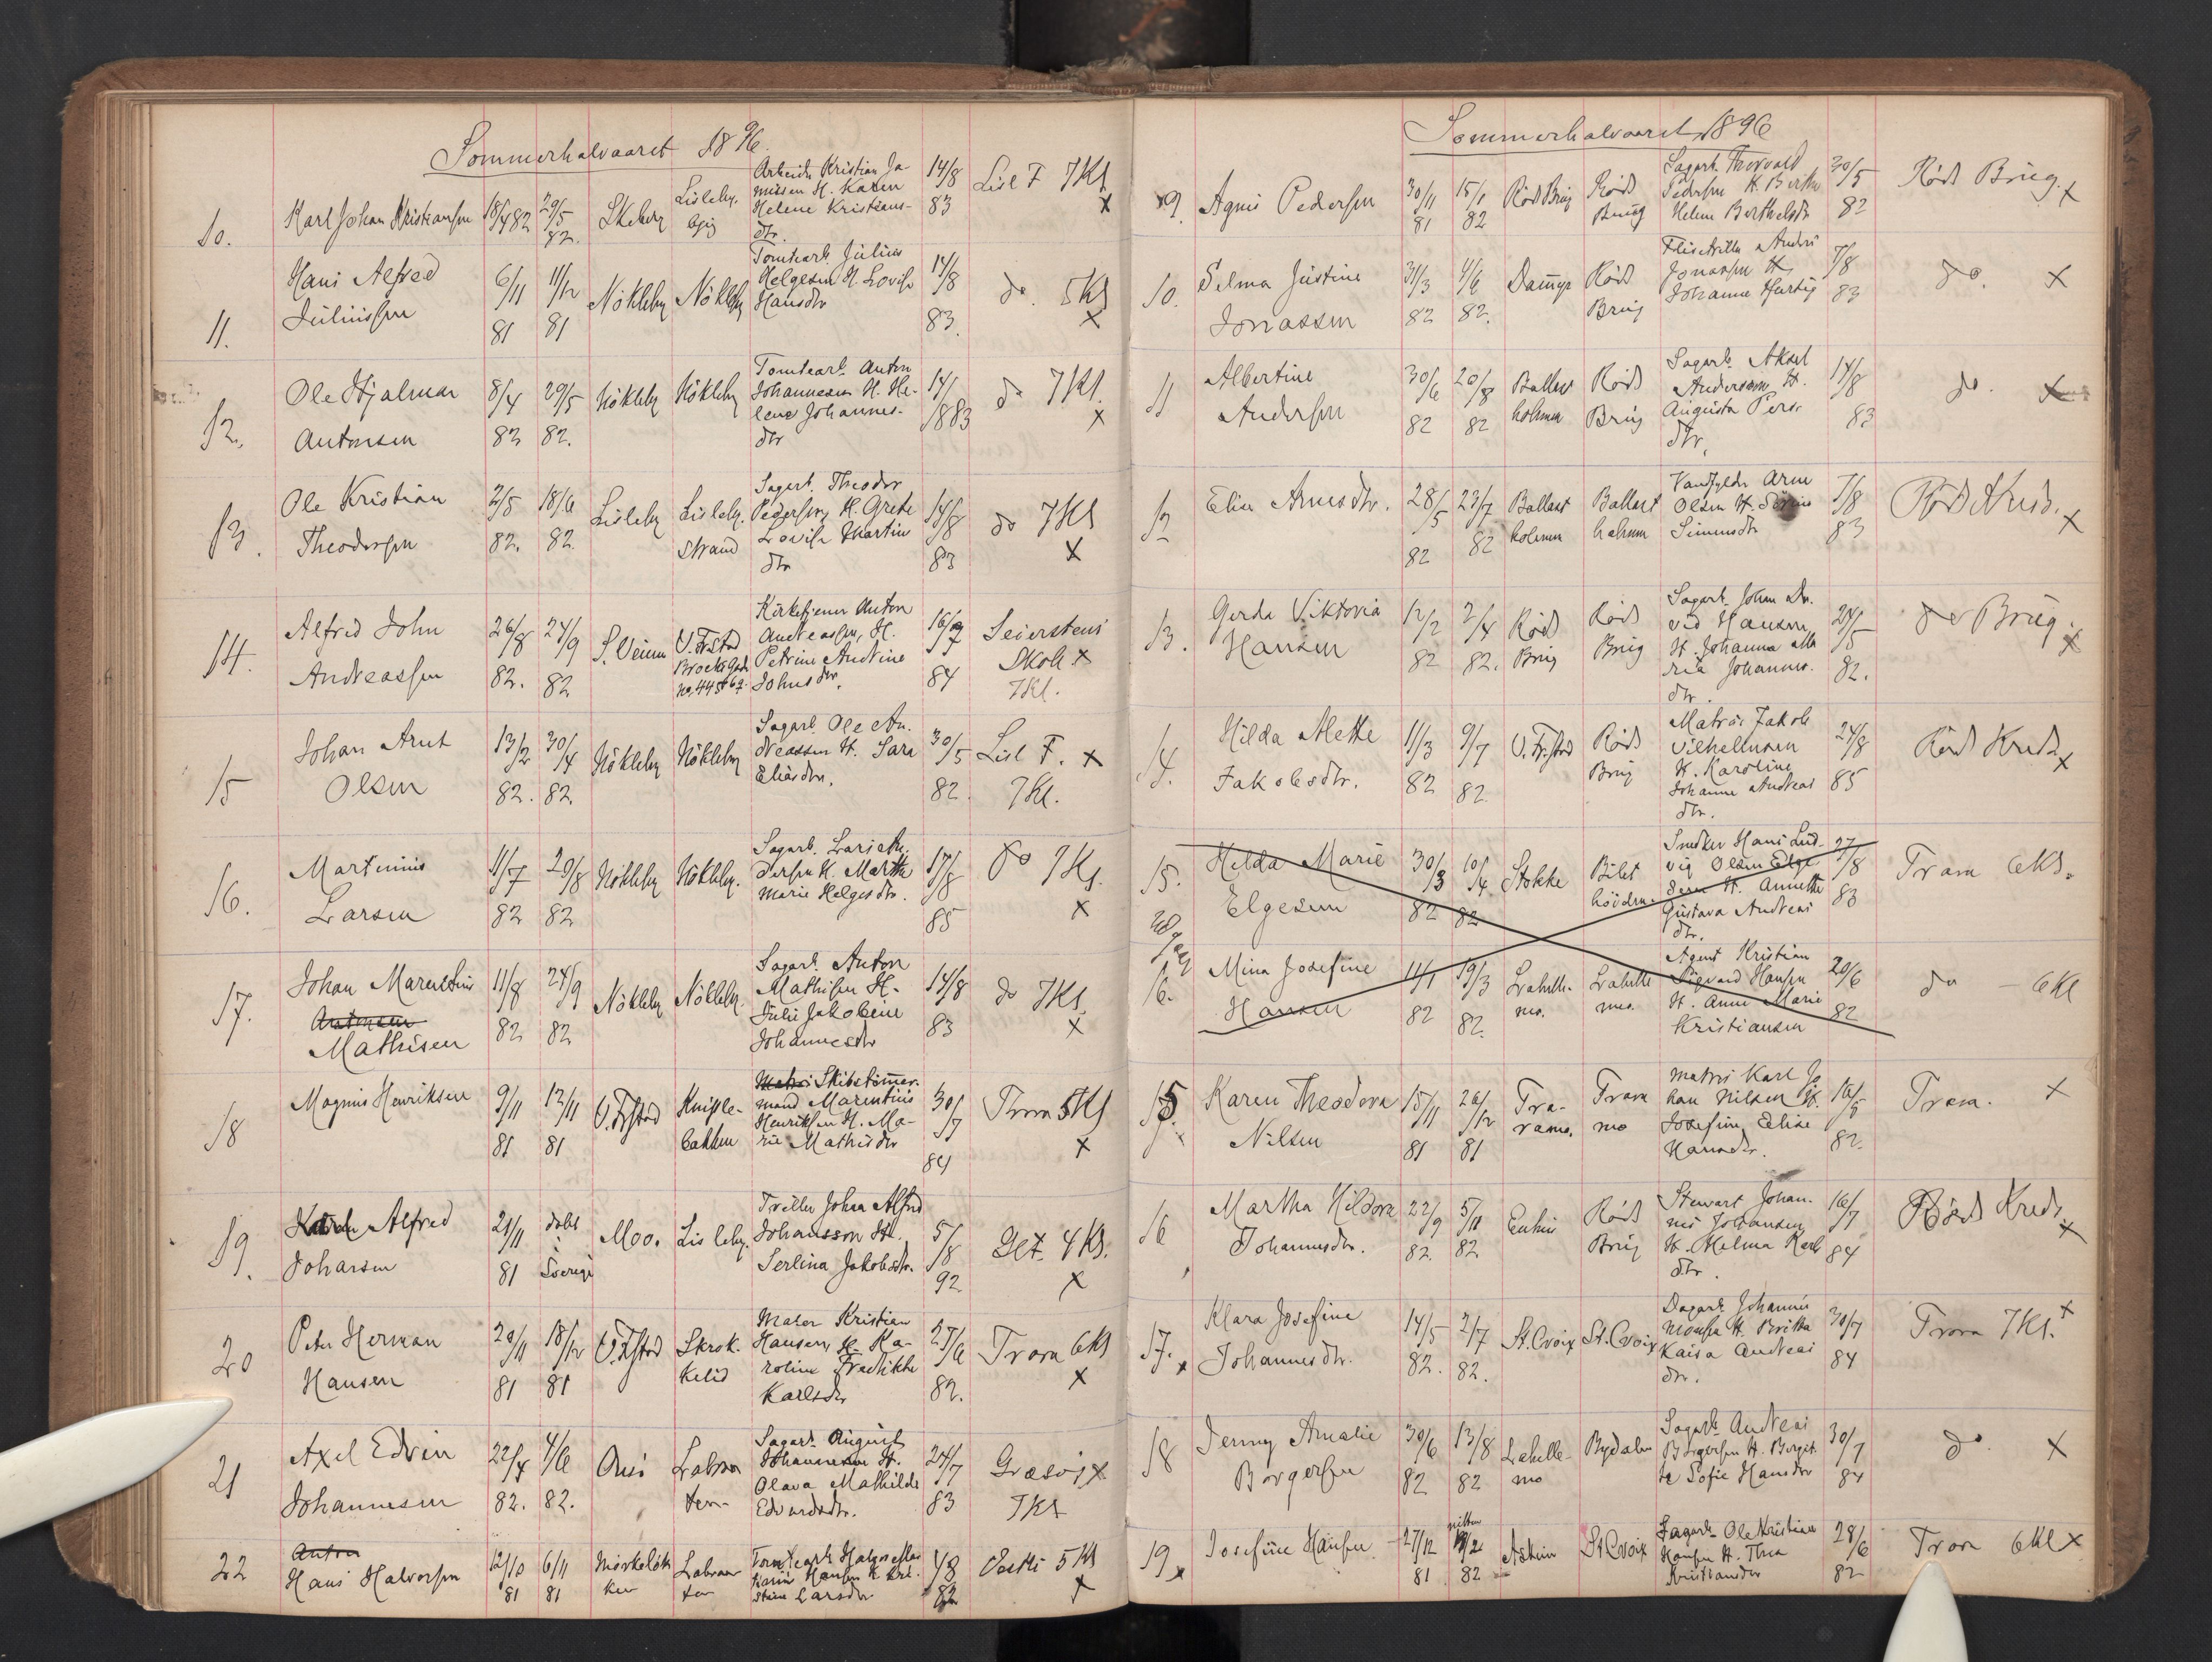 Sommerhalvaaret 1896.
10. Karl Johan Kristiansen 18/4 82 29/5 82. Skeberg Lisleby. Arbeider Kristian Ja-
H. Karen
Helene Kristians-
dtr. 14/8 83 Lisl F 7Kl x
11. Hans Alfred
Juliussen 6/11 81 11/12 81 Nökleby Nökleby Tomtearb. Julius
Helgesen H. Lovise
Hansdtr 14/8 83. do. 5Kl x
12. Ole Hjalmar
Antonsen 8/4 82 29/5 82. Nökleby Nökleby Tomtearb. Anton
Johannesen H. He-
lene Johannes-
dtr 14/ 1883 do 7Kl. x
13. Ole Kristian
Theodorsen 2/5 82. 18/6 82. Lisleby Lisleby.
Strand Sagarb. Theodor
Pedersen H. Grete
Lovise Martin
dtr 14/8 83 do 7Kl x
14. Alfred John
Andreassen 26/8 82. 24/9 82 V. Frstad
Kirketjener Anton
Andreassen, H.
Petrine Andrine
Johnsdtr. 84 Seierstens
Skole x
7Kl.
15 Johan Arnt
Olsen 13/2 82. 30/4 82. Nökleby Nökleby Sagarb. Ole An-
dreassen H. Sara
Eliasdtr. 30/5 82. Lisl F. x
7Kl.
16. Martinius
Larsen 11/7 82 20/8 82 Nökleby Nökleby. Sagarb. Lars An-
dersen H. Marthe
Marie Helgesdtr. 17/8 85 do 7Kl. x
17. Johan Marentius
Antonsen
Mathisen 11/8 82 24/9 82 Nökleby Nökleby. Sagarb. Anton
Mathisen H.
Julie Jakobine
Johannesdtr 14/8 83 do 7Kl. x
18 Magnus Henriksen 9/11 81 13/11 81 V. Frstad Knipple-
bakken Matros Skibstömmer-
mand Marentius
Henriksen H. Ma-
rie Mathisdtr 30/7 84 Trara 5Kl x
19. Alfred
Johansen 21/11 81 döbt
i
Sverige Moo. Lisleby. Triller Johan Alfred
Johansson H.
Serlina Jakobsdtr. 5/8 92 4Kl. x
20 Peter Herman
Hansen 29/11 81 18/12 81 V. Frstad Skrok-
kelid Maler Kristian
Hansen H. Ka-
roline Fredrikke
Karlsdtr 27/6 82. Trara 6Kl x
21 Axel Edvin
Johannesen 22/4 82. 4/6 82. Onsö Labraa-
ten Sagarb. August
Johannesen H.
Olava Mathilde
Edvardsdtr. 24/7 83 Græsvig x
7Kl
22 Anton
Hans Halvorsen 12/10 81 6/11 81 Labraa-
ten Tomtearb. Halvor
Hansen H. Kri-
stine Larsdtr 4/8 5Kl x
Sommerhalvaaret 1896
9. Agnes Pedersen 30/11 81 15/1 82 Röds Brug Röds
Brug Sagarb. Thorvald
Pedersen H. Berthe
Helene Berthelsdtr 30/5 82 Röds Brug. x
10. Selma Justine
Jonassen 31/3 82 4/6 82. Röds
Brug Andrs
Jonassen H.
Johanne Hartvig 7/8 83 do. x
11 Albertine
Andersen 30/6 82 20/8 82 Ballast
holmen Röds
Brug Sagarb. Aksel
Andersen H.
Augusta Pers-
dtr. 14/8 83 do. x
12 Elise Arnesdtr. 28/5 82 23/7 82 Ballast
holmen Ballast
holmen Vandfylder Arne
Olsen H.
Simensdtr 7/8 83 Röds Kreds. x
13. Gerda Viktoria
Hansen 12/2 82 2/4 82. Röds
Brug Röds
Brug Sagarb. Johan Da-
vid Hansen
H. Johanna Ma
ria Johannes-
dtr. 24/5 82. do Brug. x
14. Hilda Mette
Jakobsdtr. 11/3 82 9/7 82. V. Fr.stad Röds
Brug Matros Jakob
Vilhelmsen
H. Karoline
Johanne Andreas
dtr. 24/8 85 Röds Kreds x
15. Hilda Marie
Elgesen 30/3 82 10/4 82 Stokke Snedker Hans Lud-
vig Olsen Elge
sen H. Annette
Gustava Andreas
dtr. 27/8 83 Trara 6Kl.
16. Mina Josefine
Hansen 11/1 82 19/3 82. Lahelle-
mo. Lahelle
mo. Agent Kristian
Sigvard Hansen
H. Anne Marie
Kristiansen 20/6 82 do — 6Kl
15. Karen Theodora
Nilsen 15/11 81 26/12 81 Tra-
ramo. Trara
mo Matros Karl Jo
han Nilsen H.
Josefine Elise
Hansdtr. 16/5 82. Trara. x
16 Martha Hildora
Johannesdtr. 22/9 82. 5/11 82 Röds
Brug Stewart Johan-
nes Johansen
H. Helma Karls
dtr. 16/7 84 Röds Kreds x
17. x Klara Josefine
Johannesdtr. 14/5 82. 2/7 82. St. Croix St. Croix Dagarb. Johannes
H. Britta
Kaisa Andreas
dtr. 30/7 84 Trara 7Kl. x
18 Jenny Amalie
Borgersen 30/6 82 13/8 82 Lahelle-
mo Bydalen Sagarb. Andreas
Borgersen H. Borget-
te Sofie Hansdtr 30/7 84 do. x
19. x Josefine Hansen 27/12 81 82 Askim St Croix Sagarb. Ole Kristian
Hansen H. Thea
Kristiansdtr 28/6 82 Trara 6Kl x